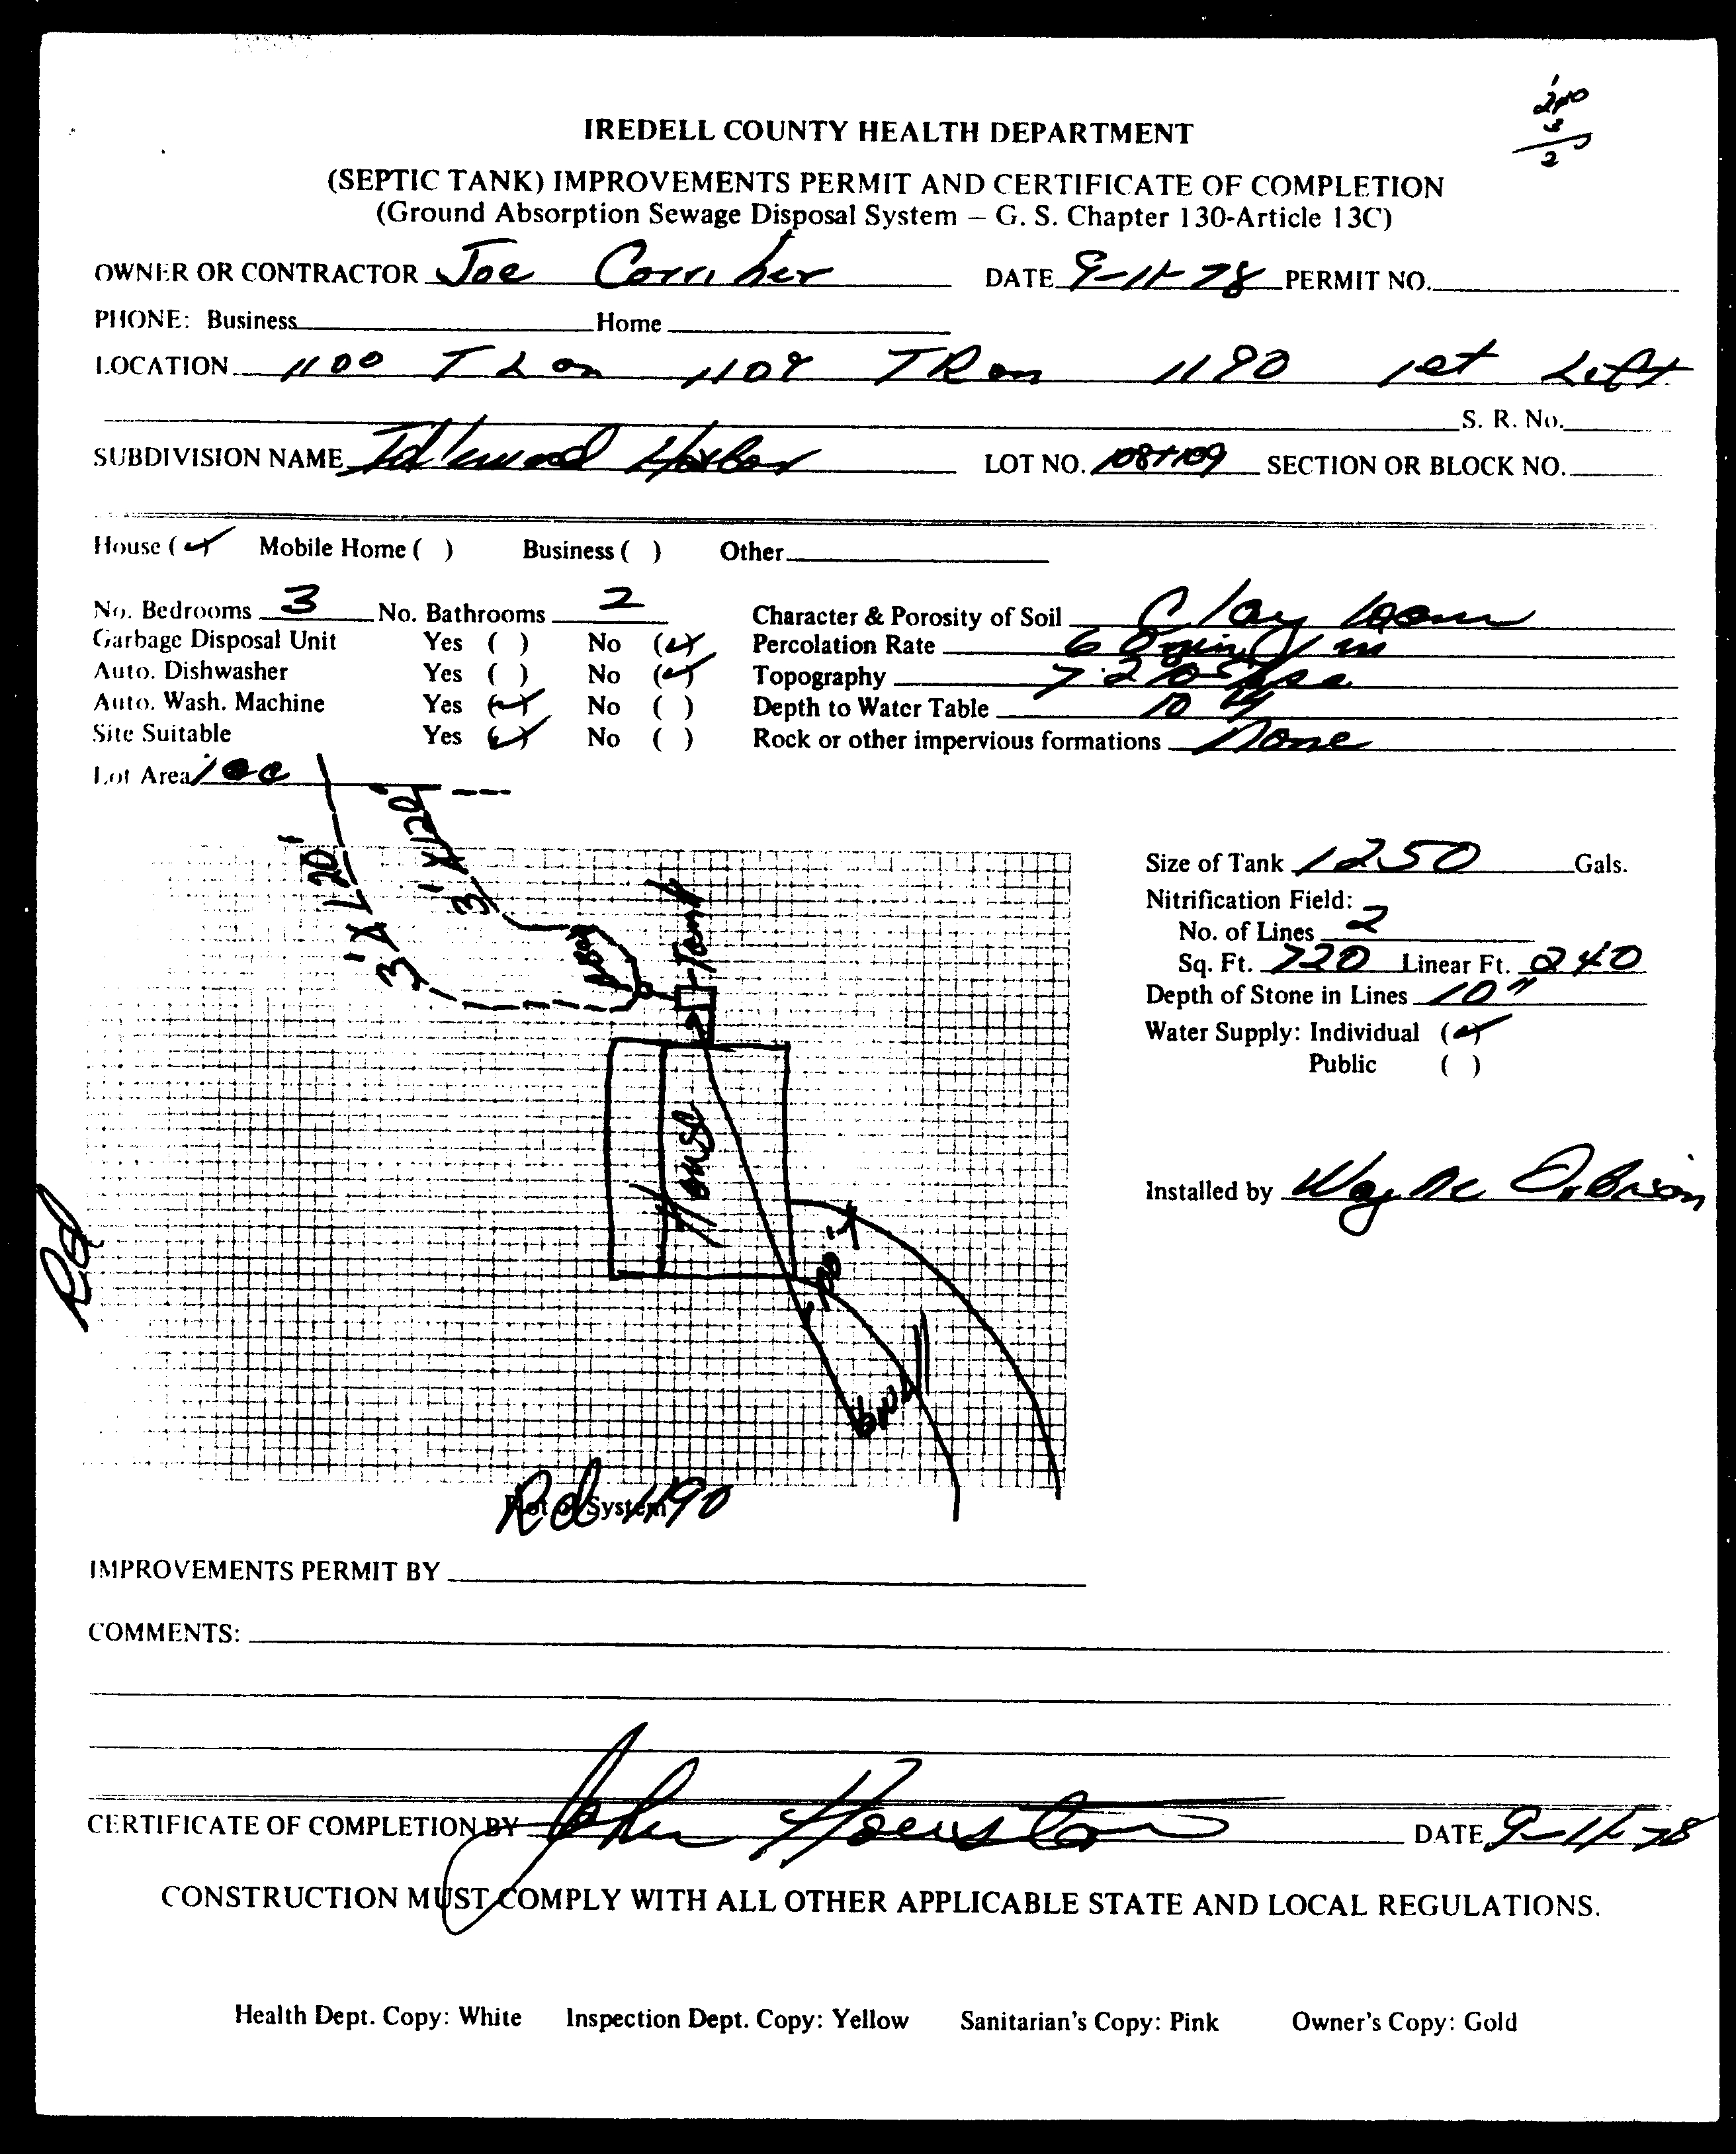 240
3
IREDELL COUNTY HEALTH DEPARTMENT
(SEPTIC TANK) IMPROVEMENTS PERMIT AND CERTIFICATE OF COMPLETION
(Ground Absorption Sewage Disposal System – G. S. Chapter 130-Article 13C)
OWNER OR CONTRACTOR Joe Corriher DATE 9-11-78 PERMIT NO.
PHONE: Business Home
LOCATION 1100 TL on 1109 TR on 1190 1st Left
S. R. No.
SUBDIVISION NAME Idlewood Harbor LOT NO. 108+109 SECTION OR BLOCK NO.
House (✓) Mobile Home ( ) Business ( ) Other
No. Bedrooms 3 No. Bathrooms 2 Character & Porosity of Soil Clay loam
Garbage Disposal Unit Yes ( ) No (✓) Percolation Rate 60 min/in
Auto. Dishwasher Yes ( ) No (✓) Topography
Auto. Wash. Machine Yes (✓) No ( ) Depth to Water Table 10
Site Suitable Yes (✓) No ( ) Rock or other impervious formations None
Lot Area
3' X 120'
3' X 120'
Size of Tank 1250 Gals.
Nitrification Field:
No. of Lines 2
Sq. Ft. 720 Linear Ft. 240
Depth of Stone in Lines 10"
Water Supply: Individual (✓)
Public ( )
Tank
House
Installed by Wayne
Rd
Well
Plot of System
Rd 1190
IMPROVEMENTS PERMIT BY
COMMENTS:
CERTIFICATE OF COMPLETION BY John Houston DATE 9-11-78
CONSTRUCTION MUST COMPLY WITH ALL OTHER APPLICABLE STATE AND LOCAL REGULATIONS.
Health Dept. Copy: White Inspection Dept. Copy: Yellow Sanitarian's Copy: Pink Owner's Copy: Gold